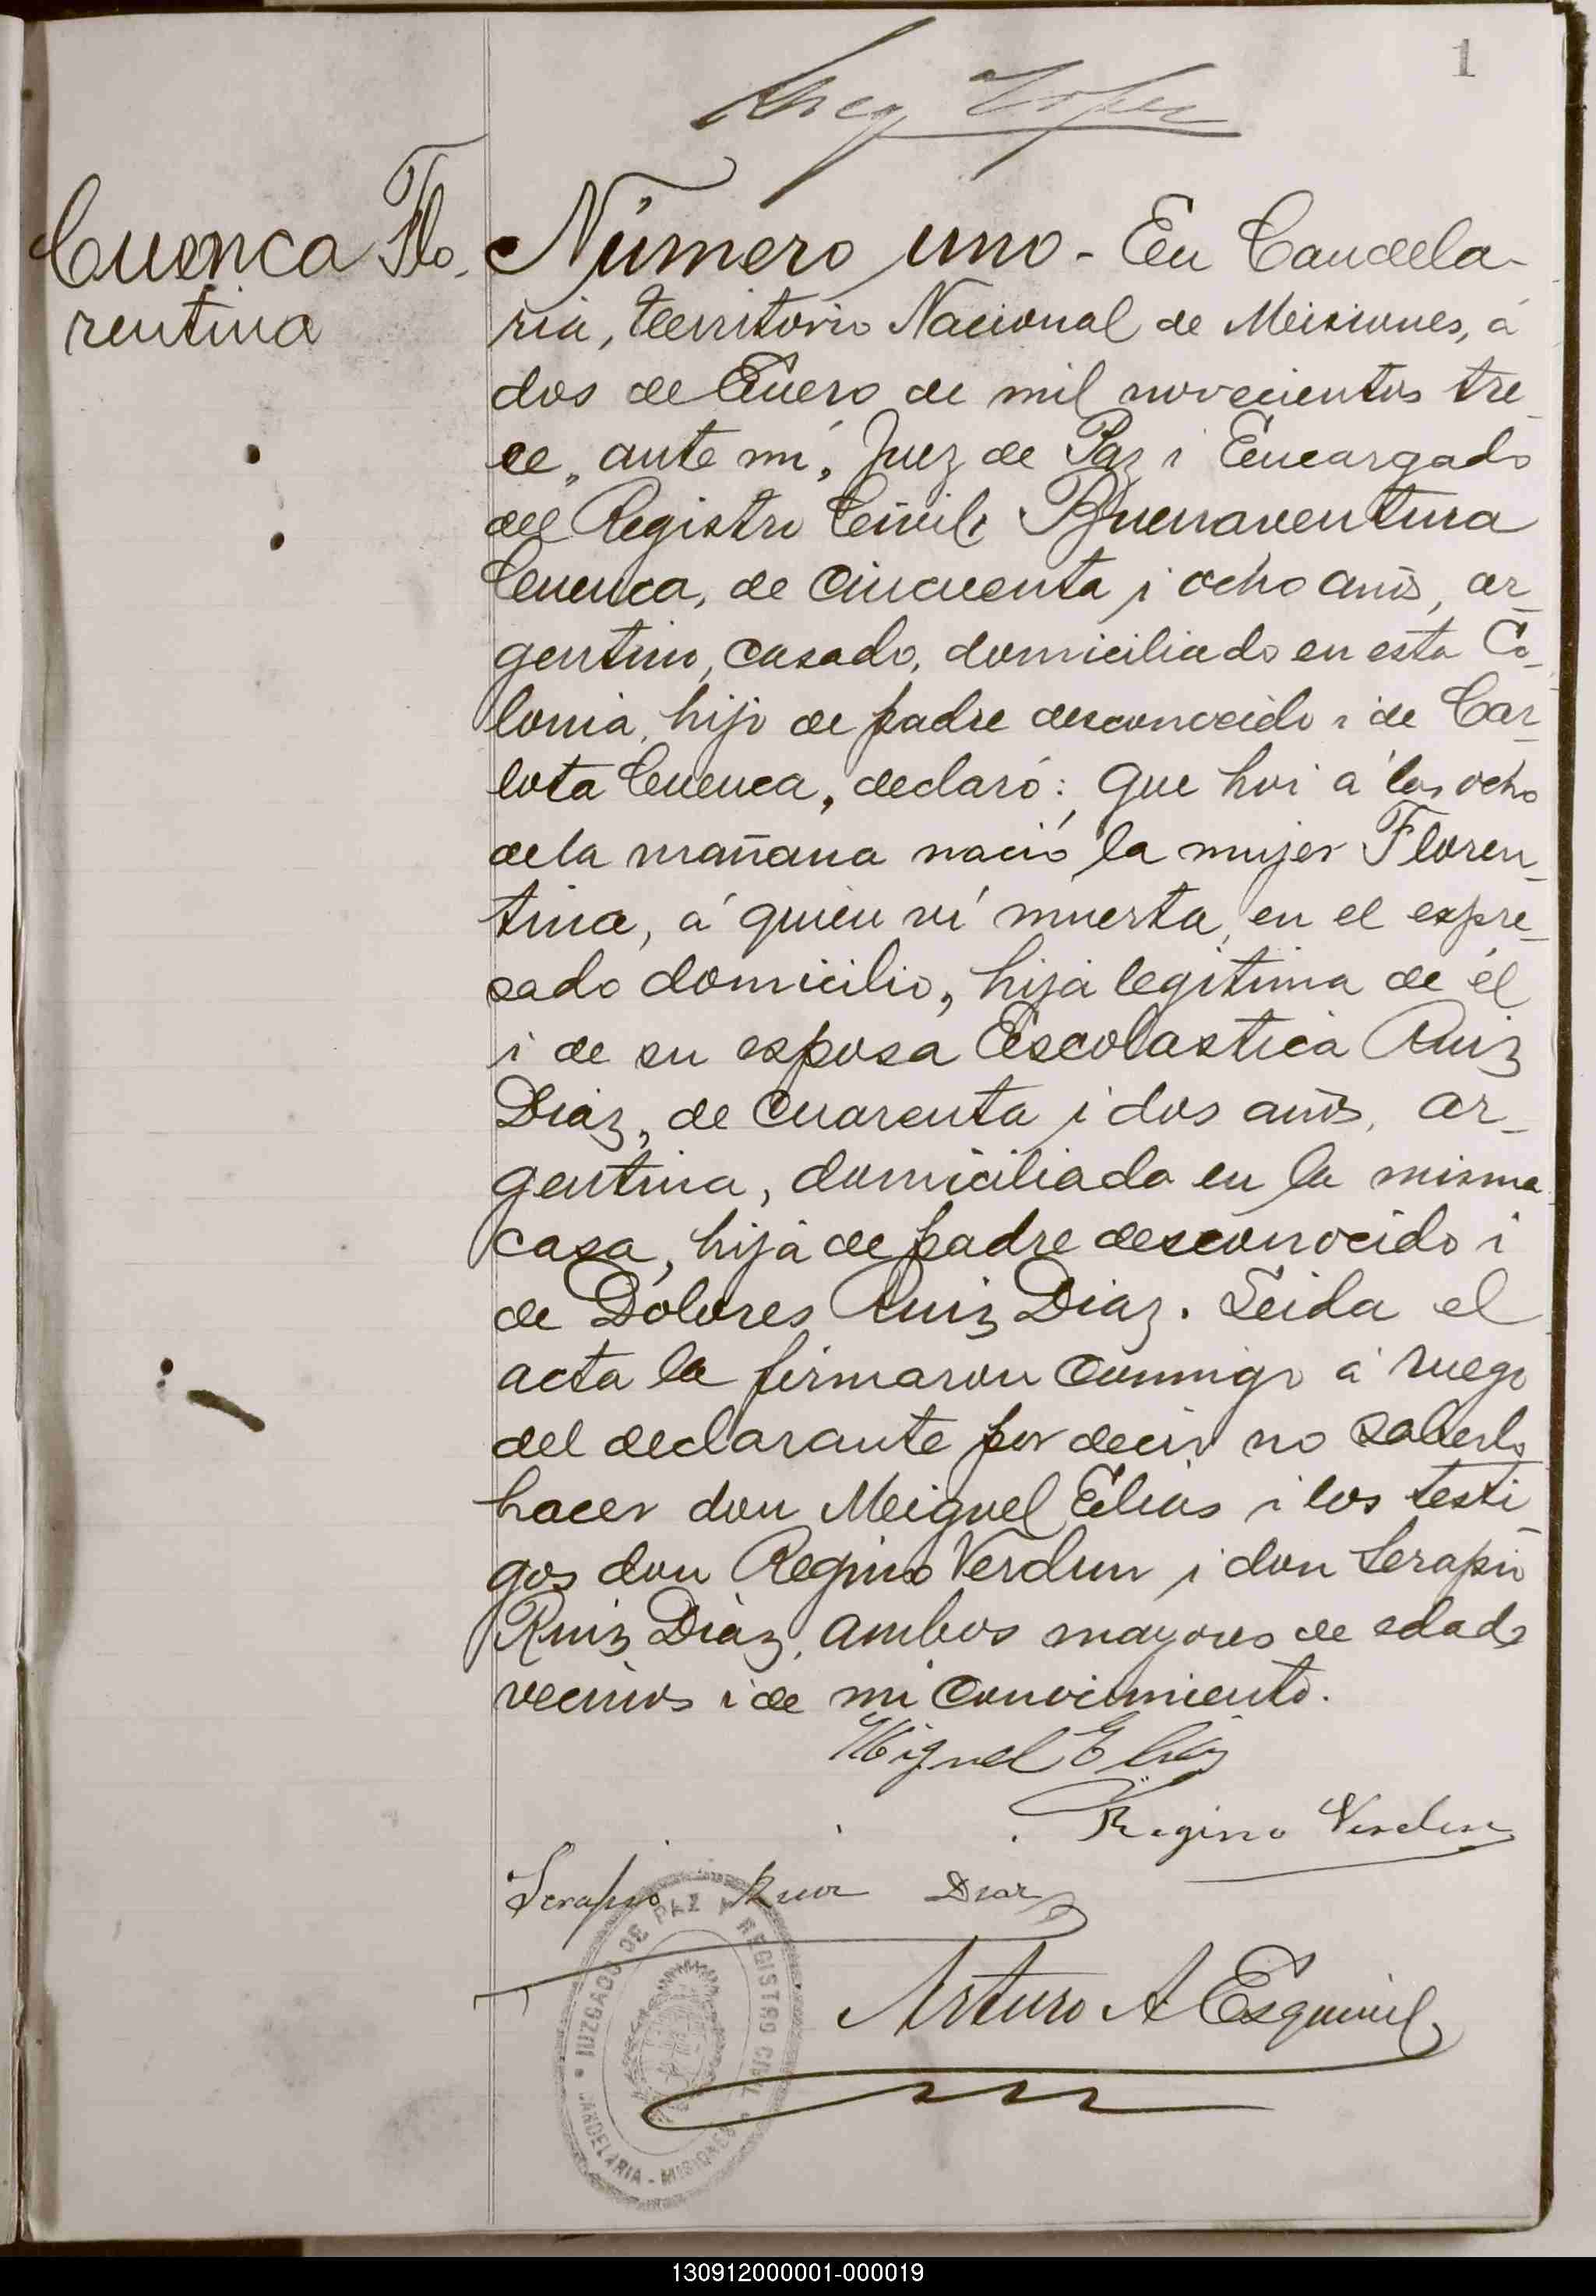 1
Cuenca Flo-
rentina
Número uno - En Candela-
ria, territorio Nacional de Misiones, á
dos de Enero de mil novecientos tre-
ce, ante mí, Juez de Paz i Encargado
del Registro Civil, Buenaventura
Cuenca, de cincuenta i ocho años, ar-
gentino, casado, domiciliado en esta Co-
lonia, hijo de padre desconocido i de Car-
lota Cuenca, declaró: Que hoi á las ocho
de la mañana nació la mujer Floren-
tina, á quien ví muerta, en el espre-
sado domicilio, hija legitima de él
i de su esposa Escolastica Ruiz
Diaz, de cuarenta i dos años, ar-
gentina, domiciliada en la misma
casa, hija de padre desconocido i
de Dolores Ruiz Diaz. Leida el
acta la firmaron conmigo á ruego
del declarante por decir no saberlo
hacer don Miguel Elias i los testi-
gos don Regino Verdun i don Serapio
Ruiz Diaz, ambos mayores de edad,
vecinos i de mi conocimiento.
Miguel Elias
Regino Verdun
Serapio Ruiz Diaz
Arturo A Esquivel
JUZGADO DE PAZ Y REGISTRO CIVIL
CANDELARIA - MISIONES
130912000001-000019